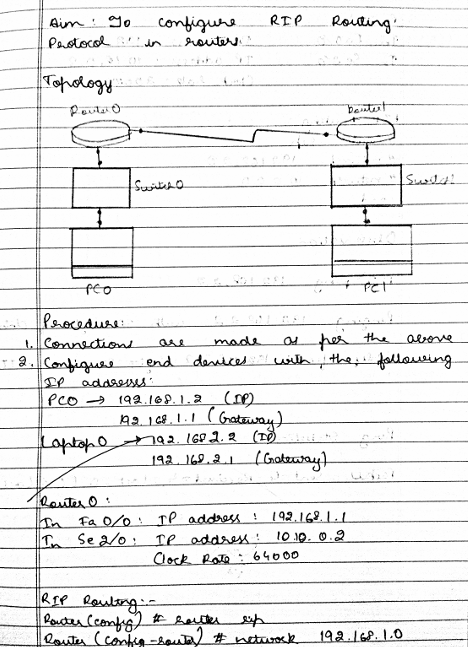 Aim : To configure RIP Routing
Protocol in routers.
Topology
Router0
Router1
Switch0
Switch1
PC0
PC1
Procedure:
1. Connections are made as per the above
2. Configure end devices with the following
IP addresses:
PC0 → 192.168.1.2 (IP)
192.168.1.1 (Gateway)
Laptop0 → 192.168.2.2 (IP)
192.168.2.1 (Gateway)
Router0 :
In Fa 0/0 : IP address : 192.168.1.1
In Se 2/0 : IP address : 10.10.0.2
Clock Rate : 64000
RIP Routing:-
Router (config) # router rip
Router (config-router) # network 192.168.1.0